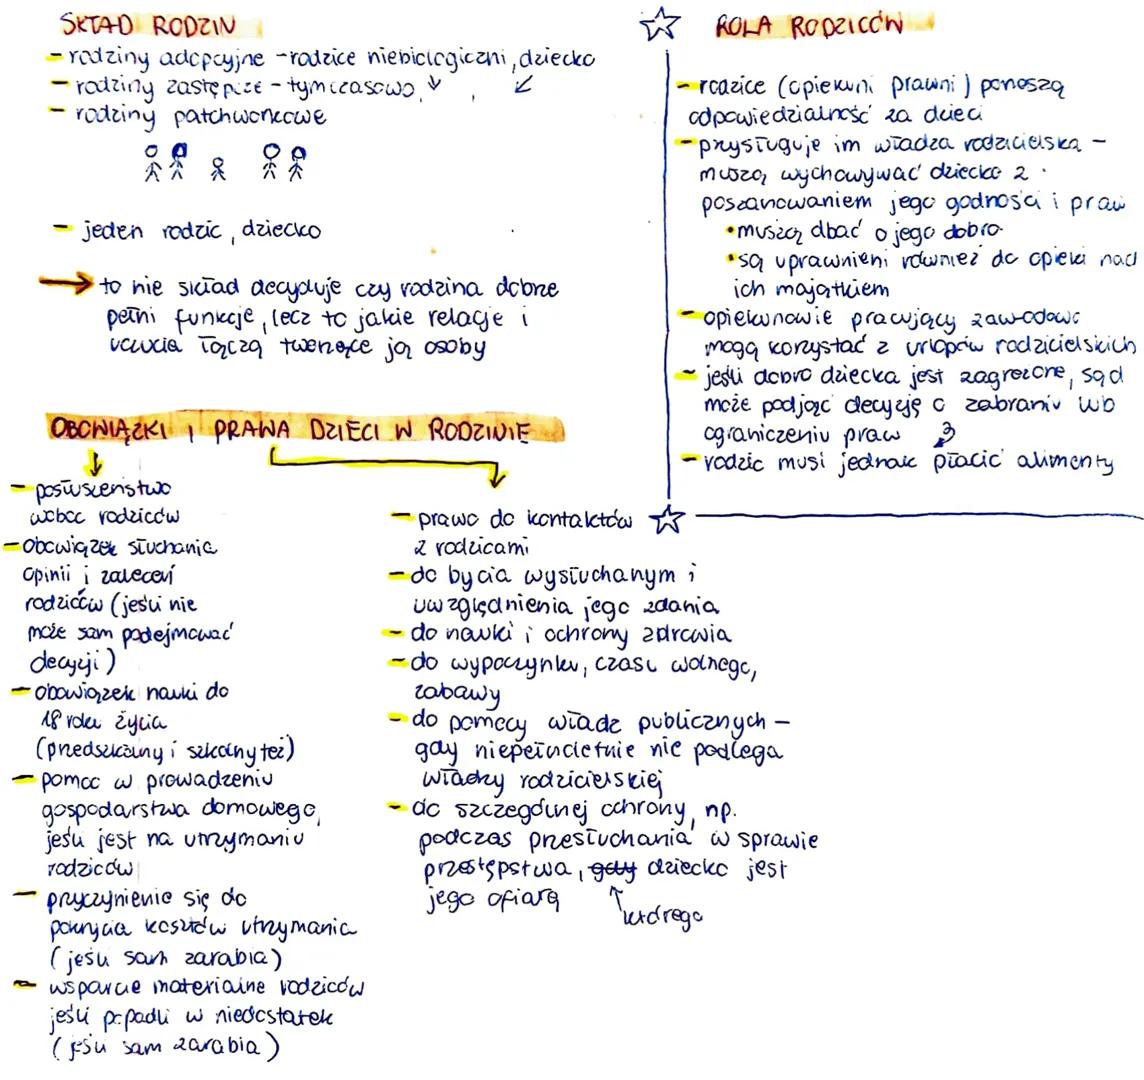 SKŁAD RODZIN
- rodziny adopcyjne - rodzice niebiologiczni, dziecko
- rodziny zastępcze - tymczasowo
- rodziny patchworkowe
- jeden rodzic, dziecko
→ to nie skład decyduje czy rodzina dobrze
pełni funkcje, lecz to jakie relacje i
uczucia łączą tworzące ją osoby
ROLA RODZICÓW
- rodzice (opiekuni prawni) ponoszą
odpowiedzialność za dzieci
- przysługuje im władza rodzicielska -
muszą wychowywać dziecko z
poszanowaniem jego godności i praw
• muszą dbać o jego dobro
• są uprawnieni również do opieki nad
ich majątkiem
- opiekunowie pracujący zawodowo
mogą korzystać z urlopów rodzicielskich
- jeśli dobro dziecka jest zagrożone, sąd
może podjąć decyzję o zabraniu lub
ograniczeniu praw
- rodzic musi jednak płacić alimenty
OBOWIĄZKI I PRAWA DZIECI W RODZINIE
- posłuszeństwo
wobec rodziców
- obowiązek słuchania
opinii i zaleceń
rodziców (jeśli nie
może sam podejmować
decyzji)
- obowiązek nauki do
18 roku życia
(przedszkolny i szkolny też)
- pomoc w prowadzeniu
gospodarstwa domowego,
jeśli jest na utrzymaniu
rodziców
- przyczynienie się do
pokrycia kosztów utrzymania
(jeśli sam zarabia)
- wsparcie materialne rodziców
jeśli popadli w niedostatek
(jeśli sam zarabia)
- prawo do kontaktów
z rodzicami
- do bycia wysłuchanym i
uwzględnienia jego zdania
- do nauki i ochrony zdrowia
- do wypoczynku, czasu wolnego,
zabawy
- do pomocy władz publicznych -
gdy niepełnoletnie nie podlega
władzy rodzicielskiej
- do szczególnej ochrony, np.
podczas przesłuchania w sprawie
przestępstwa, gdy dziecko jest
jego ofiarą
którego